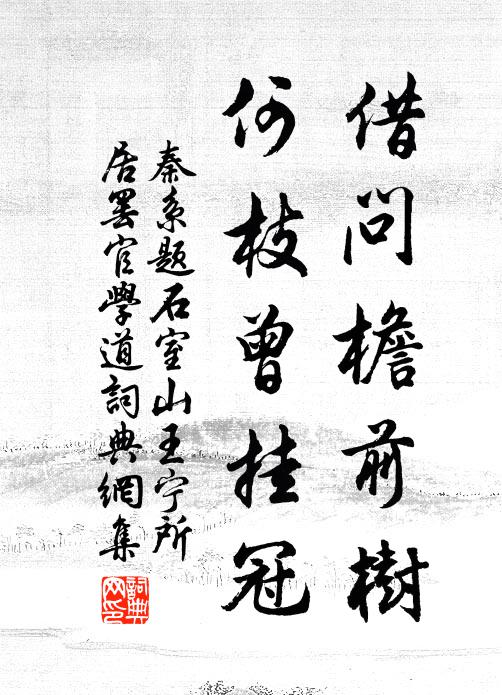 借問檐前樹
何枝曾挂冠
秦系題石室山王宁所
居罢官學道詞典網集
詞典
网印